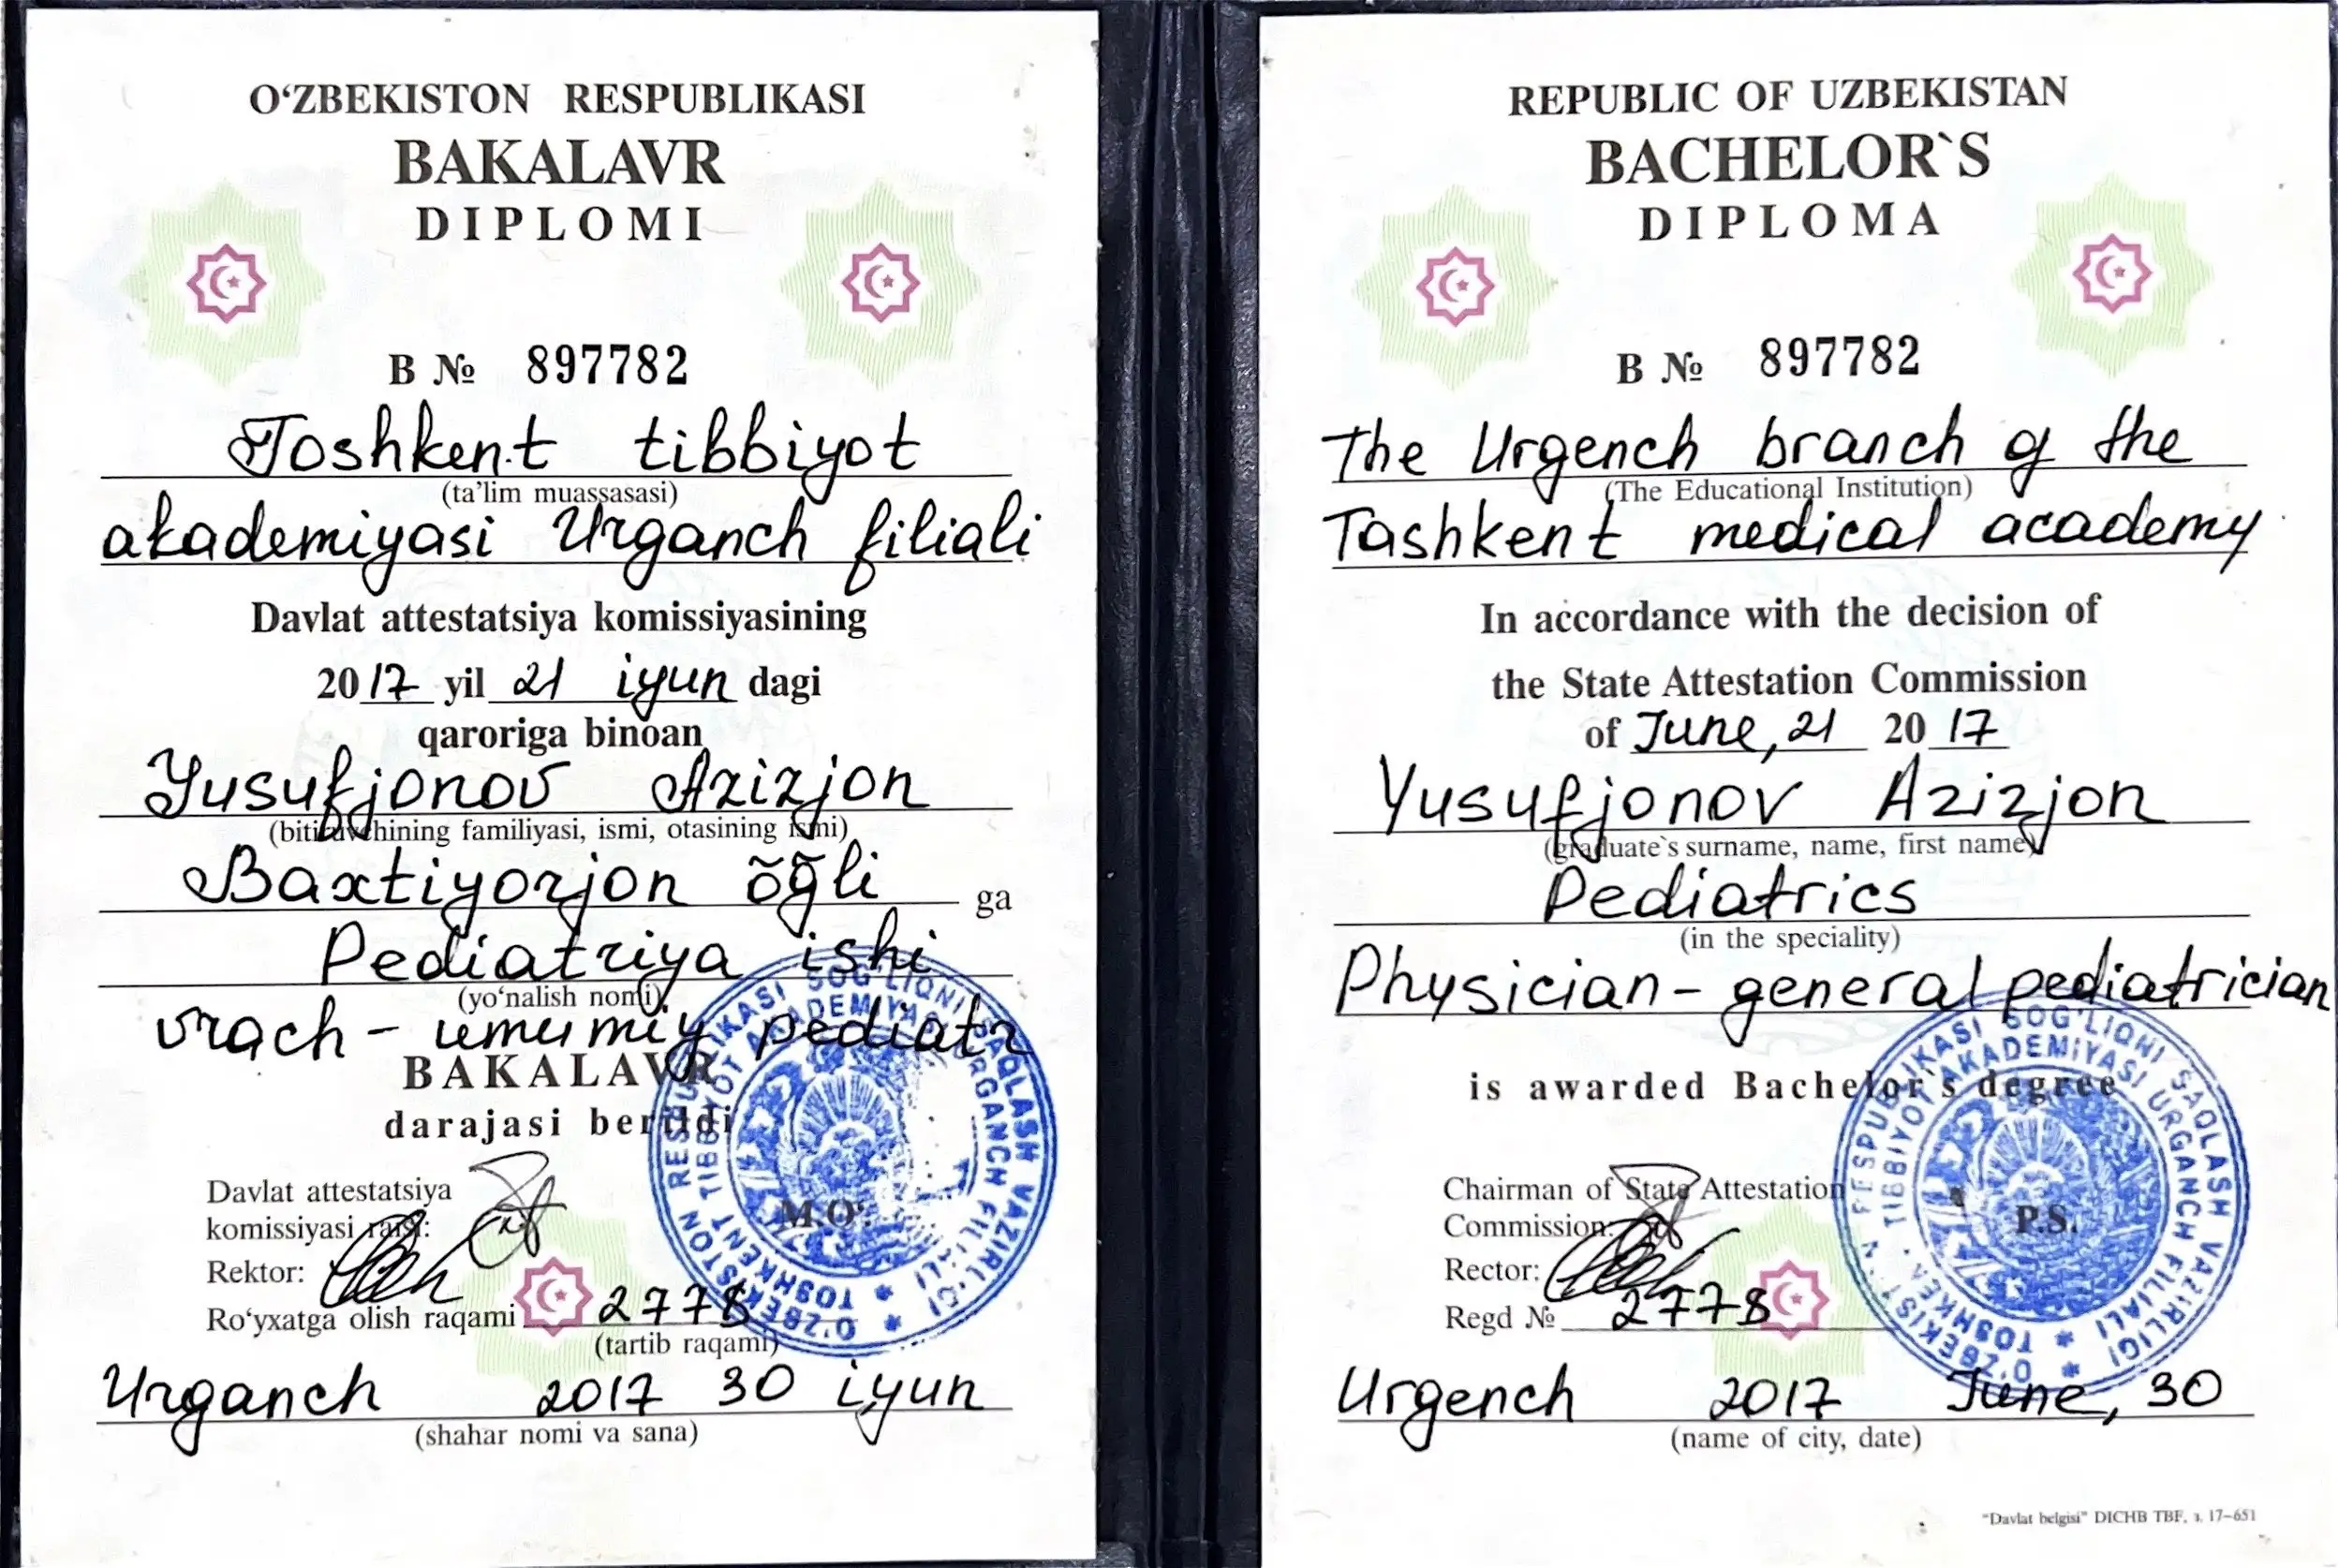 O‘ZBEKISTON RESPUBLIKASI
BAKALAVR
DIPLOMI
B № 897782
Toshkent tibbiyot
(ta’lim muassasasi)
akademiyasi Urganch filiali
Davlat attestatsiya komissiyasining
2017 yil 21 iyun dagi
qaroriga binoan
Yusufjonov Azizjon
(bitiruvchining familiyasi, ismi, otasining ismi)
Baxtiyorjon õg̃li ga
Pediatriya ishi
(yo‘nalish nomi)
vrach - umumiy pediatr
BAKALAVR
darajasi berildi
Davlat attestatsiya
komissiyasi raisi:
Rektor:
M.O‘.
Ro‘yxatga olish raqami 2778
(tartib raqami)
Urganch 2017 30 iyun
(shahar nomi va sana)
O‘ZBEKISTON RESPUBLIKASI SOG‘LIQNI SAQLASH VAZIRLIGI
TOSHKENT TIBBIYOT AKADEMIYASI URGANCH FILIALI
REPUBLIC OF UZBEKISTAN
BACHELOR`S
DIPLOMA
B № 897782
The Urgench branch of the
(The Educational Institution)
Tashkent medical academy
In accordance with the decision of
the State Attestation Commission
of June, 21 2017
Yusufjonov Azizjon
(graduate`s surname, name, first name)
Pediatrics
(in the speciality)
Physician - general pediatrician
is awarded Bachelor`s degree
Chairman of State Attestation
Commission:
Rector:
P.S.
Regd № 2778
Urgench 2017 June, 30
(name of city, date)
O‘ZBEKISTON RESPUBLIKASI SOG‘LIQNI SAQLASH VAZIRLIGI
TOSHKENT TIBBIYOT AKADEMIYASI URGANCH FILIALI
"Davlat belgisi" DICHB TBF, з. 17–651